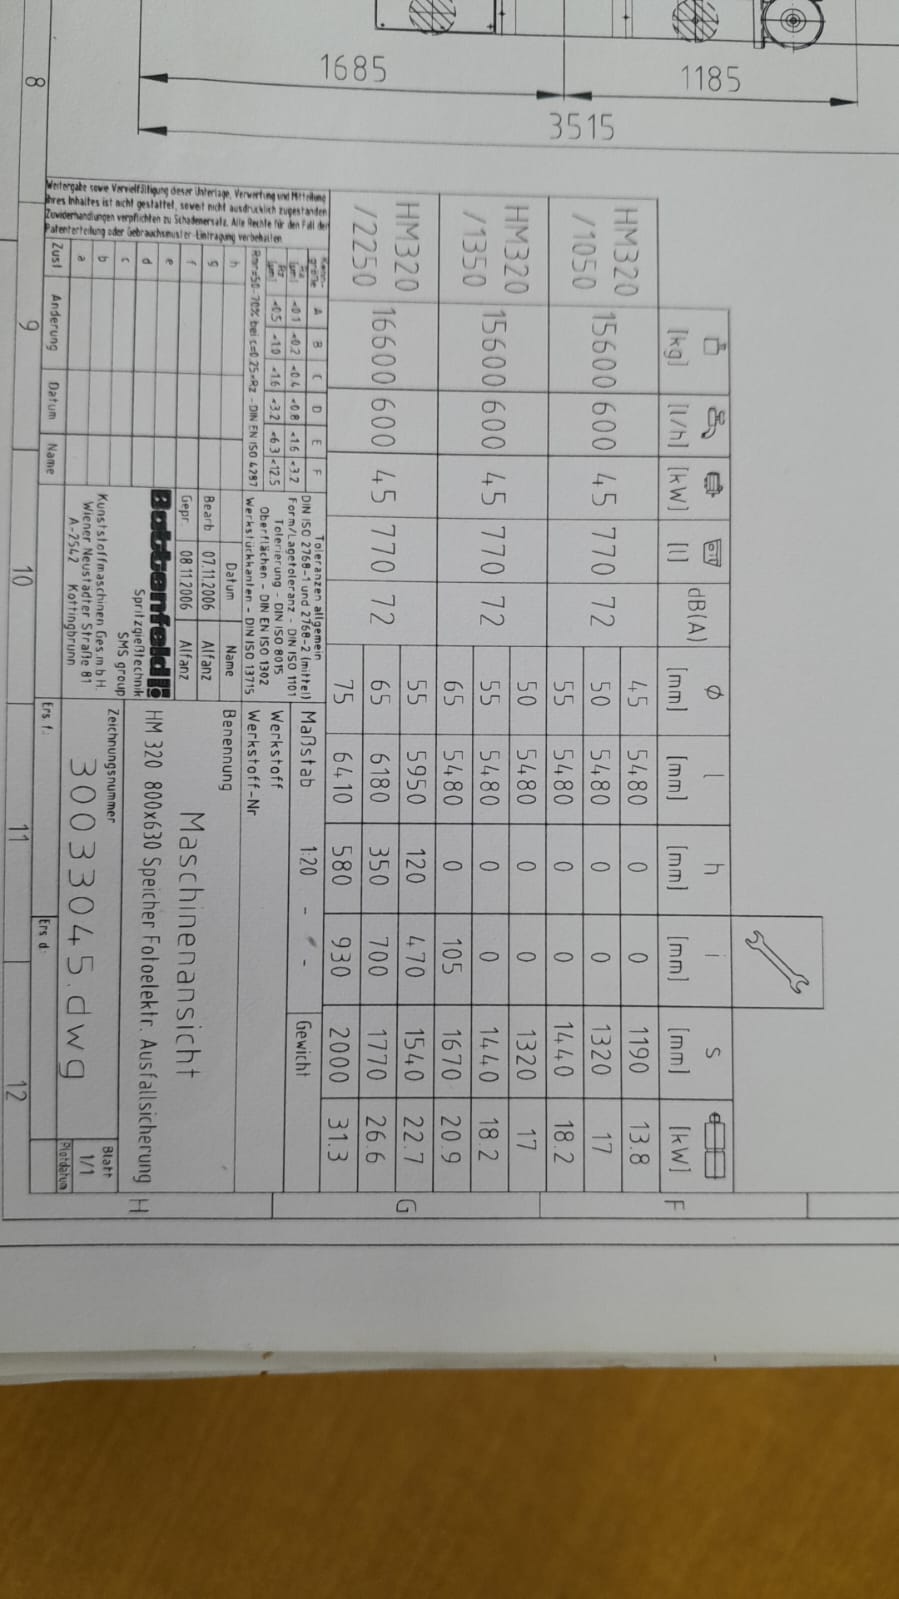 1685
1185
3515
[kg] [l/h] [kW] [l] dB(A) Ø [mm] l [mm] h [mm] i [mm] s [mm] [kW]
HM320 /1050 15600 600 45 770 72
45 5480 0 0 1190 13.8
50 5480 0 0 1320 17
55 5480 0 0 1440 18.2
HM320 /1350 15600 600 45 770 72
50 5480 0 0 1320 17
55 5480 0 0 1440 18.2
65 5480 0 105 1670 20.9
HM320 /2250 16600 600 45 770 72
55 5950 120 470 1540 22.7
65 6180 350 700 1770 26.6
75 6410 580 930 2000 31.3
Weitergabe sowie Vervielfältigung dieser Unterlage, Verwertung und Mitteilung
ihres Inhaltes ist nicht gestattet, soweit nicht ausdrücklich zugestanden.
Zuwiderhandlungen verpflichten zu Schadenersatz. Alle Rechte für den Fall der
Patenterteilung oder Gebrauchsmuster-Eintragung vorbehalten
A B C D E F
<0.1 <0.2 <0.4 <0.8 <1.6 <3.2
<0.5 <1.0 <1.6 <3.2 <6.3 <12.5
Toleranzen allgemein
DIN ISO 2768-1 und 2768-2 (mittel)
Form/Lagetoleranz - DIN ISO 1101
Tolerierung - DIN ISO 8015
Oberflächen - DIN EN ISO 1302
Werkstückkanten - DIN ISO 13715
Maßstab 1:20 - -
Gewicht
Werkstoff
Werkstoff-Nr
h
g
f
e
d
c
b
a
Zust Änderung Datum Name
Datum Name
Bearb 07.11.2006 Alfanz
Gepr. 08.11.2006 Alfanz
Battenfeld
Spritzgießtechnik
SMS group
Kunststoffmaschinen Ges.m.b.H.
Wiener Neustädter Straße 81
A-2542 Kottingbrunn
Benennung
Maschinenansicht
HM 320 800x630 Speicher Fotoelektr. Ausfallsicherung
Zeichnungsnummer
30033045.dwg
Blatt
1/1
Plotdatum
Ers. f.:
Ers d:
8 9 10 11 12
F
G
H